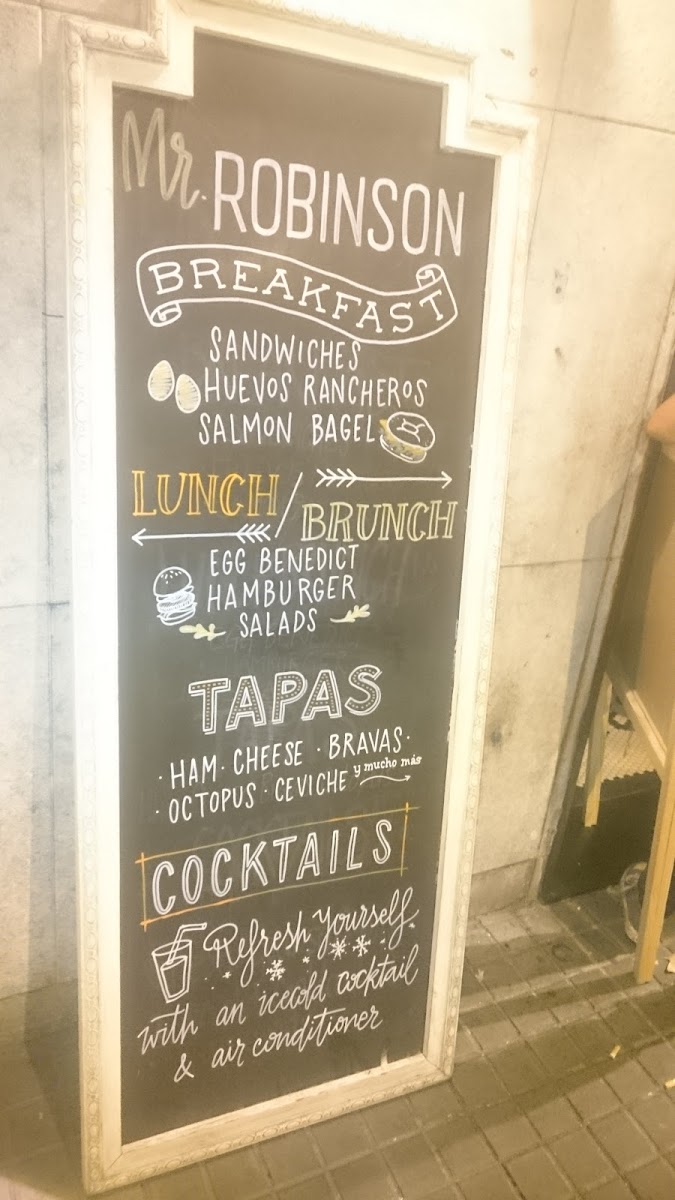 Mr. ROBINSON
BREAKFAST
SANDWICHES
HUEVOS RANCHEROS
SALMON BAGEL
LUNCH / BRUNCH
EGG BENEDICT
HAMBURGER
SALADS
TAPAS
· HAM · CHEESE · BRAVAS ·
· OCTOPUS · CEVICHE y mucho más
COCKTAILS
Refresh Yourself
with an icecold cocktail
& air conditioner